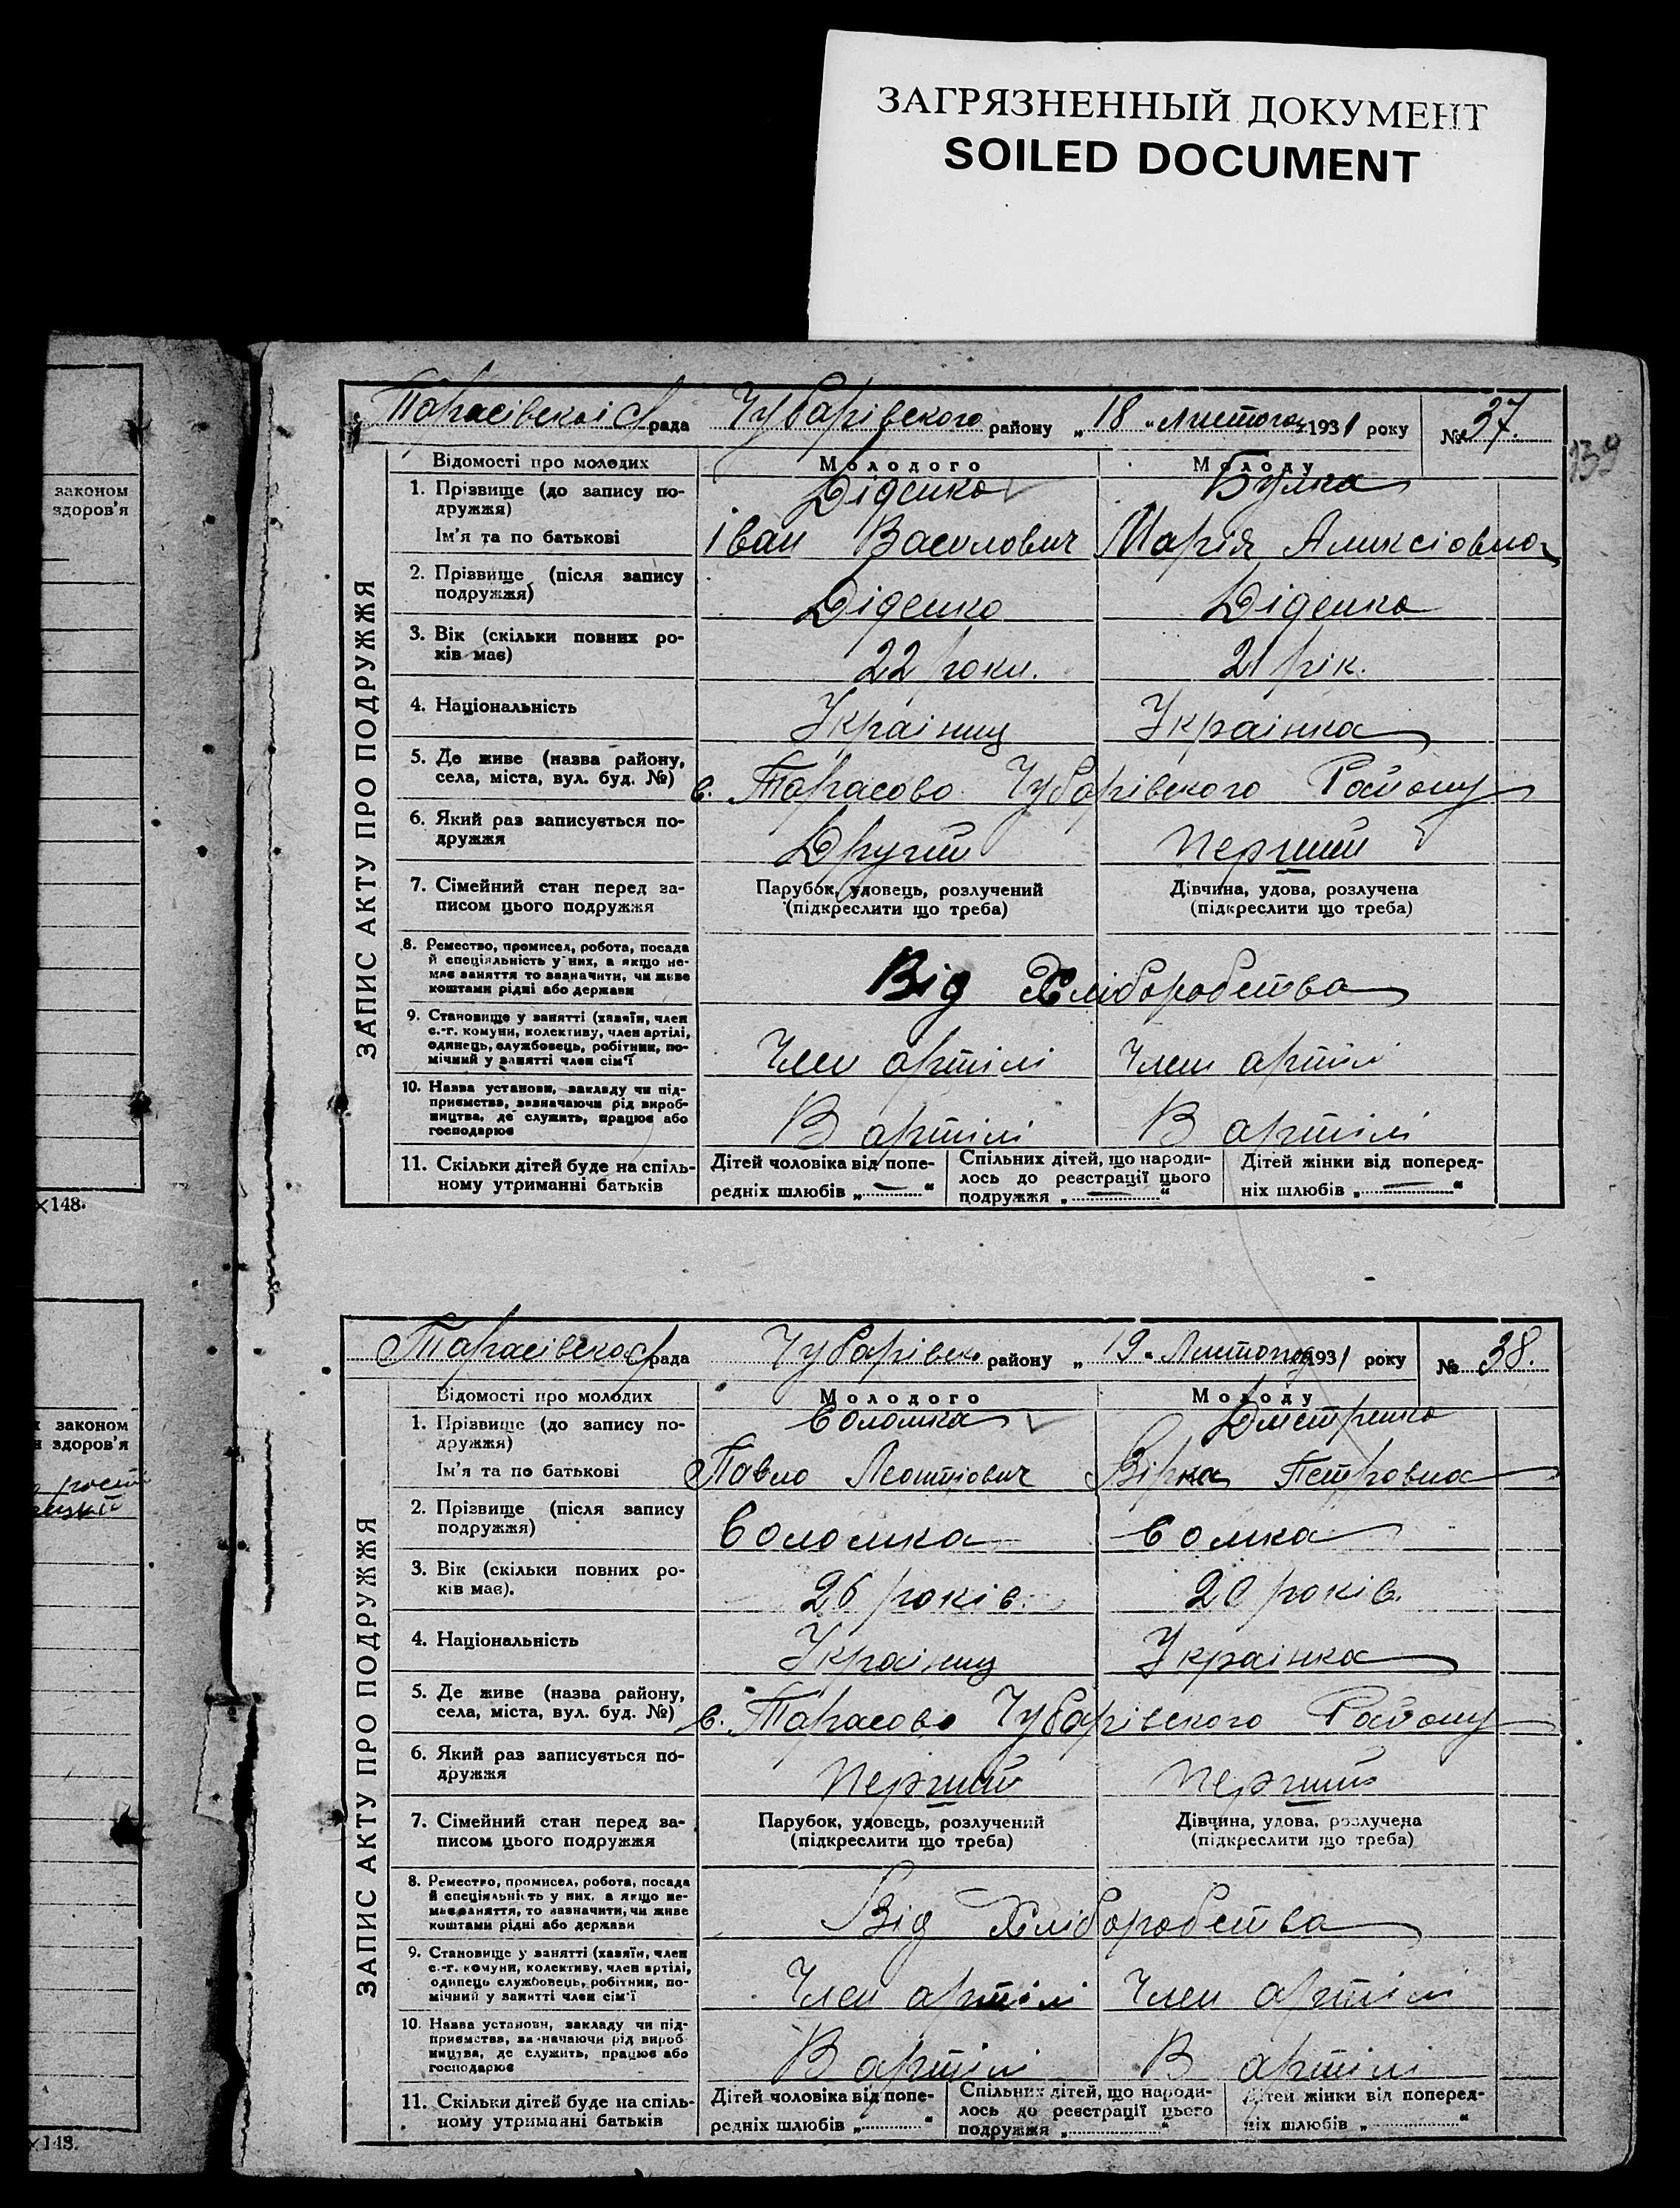 ЗАГРЯЗНЕННЫЙ ДОКУМЕНТ
SOILED DOCUMENT
Тарасівскоі С/рада Чубарівского району „ 18 " Листопад 1931 року № 37.
139
ЗАПИС АКТУ ПРО ПОДРУЖЖЯ
Відомості про молодих Молодого Молоду
1. Прізвище (до запису по-
дружжя) Діденко Булка
Ім'я та по батькові Іван Васолович Марія Аликсіовна
2. Прізвище (після запису
подружжя) Діденко Діденко
3. Вік (скільки повних ро-
ків має) 22 роки. 21 рік.
4. Національність Україниц Українка
5. Де живе (назва району,
села, міста, вул. буд. №) с. Тарасово Чубарівского Району
6. Який раз записується по-
дружжя Другий Перший
7. Сімейний стан перед за-
писом цього подружжя
Парубок, удовець, розлучений
(підкреслити що треба)
Дівчина, удова, розлучена
(підкреслити що треба)
8. Ремество, промисел, робота, посада
й спеціяльність у них, а якщо не-
має заняття то зазначити, чи живе
коштами рідні або держави
Від Хліборобства
9. Становище у занятті (хазяїн, член
с.-г. комуни, колективу, член артілі,
одинець, службовець, робітник, по-
мічний у занятті член сім'ї
Член артілі Член артілі
10. Назва установи, закладу чи під-
приємства, зазначаючи рід вироб-
ництва, де служить, працює або
господарює
В артілі В артілі
11. Скільки дітей буде на спіль-
ному утриманні батьків
Дітей чоловіка від попе-
редніх шлюбів „ — "
Спільних дітей, що народи-
лось до реєстрації цього
подружжя „ — "
Дітей жінки від поперед-
ніх шлюбів „ — "
×148.
Тарасівско С/рада Чубарівско району „ 19 " Листопад 1931 року № 38.
ЗАПИС АКТУ ПРО ПОДРУЖЖЯ
Відомості про молодих Молодого Молоду
1. Прізвище (до запису по-
дружжя) Соломка Дметренко
Ім'я та по батькові Павло Леонтіович Вірка Петровна
2. Прізвище (після запису
подружжя) Соломка Сомка
3. Вік (скільки повних ро-
ків має). 26 років. 20 років.
4. Національність Україниц Українка
5. Де живе (назва району,
села, міста, вул. буд. №) с. Тарасово Чубарівского Району
6. Який раз записується по-
дружжя Перший Перший
7. Сімейний стан перед за-
писом цього подружжя
Парубок, удовець, розлучений
(підкреслити що треба)
Дівчина, удова, розлучена
(підкреслити що треба)
8. Ремество, промисел, робота, посада
й спеціяльність у них, а якщо не-
має заняття, то зазначити, чи живе
коштами рідні або держави
Від Хліборобства
9. Становище у занятті (хазяїн, член
с.-г. комуни, колективу, член артілі,
одинець службовець, робітник, по-
мічний у занятті член сім'ї
Член артілі Член артілі
10. Назва установи, закладу чи під-
приємства, зазначаючи рід вироб-
ництва, де служить, працює або
господарює
В артілі В артілі
11. Скільки дітей буде на спіль-
ному утриманні батьків
Дітей чоловіка від попе-
редніх шлюбів „ "
Спільних дітей, що народи-
лось до реєстрації цього
подружжя „ "
Дітей жінки від поперед-
ніх шлюбів „ "
законом
здоров'я
законом
здоров'я
×148.